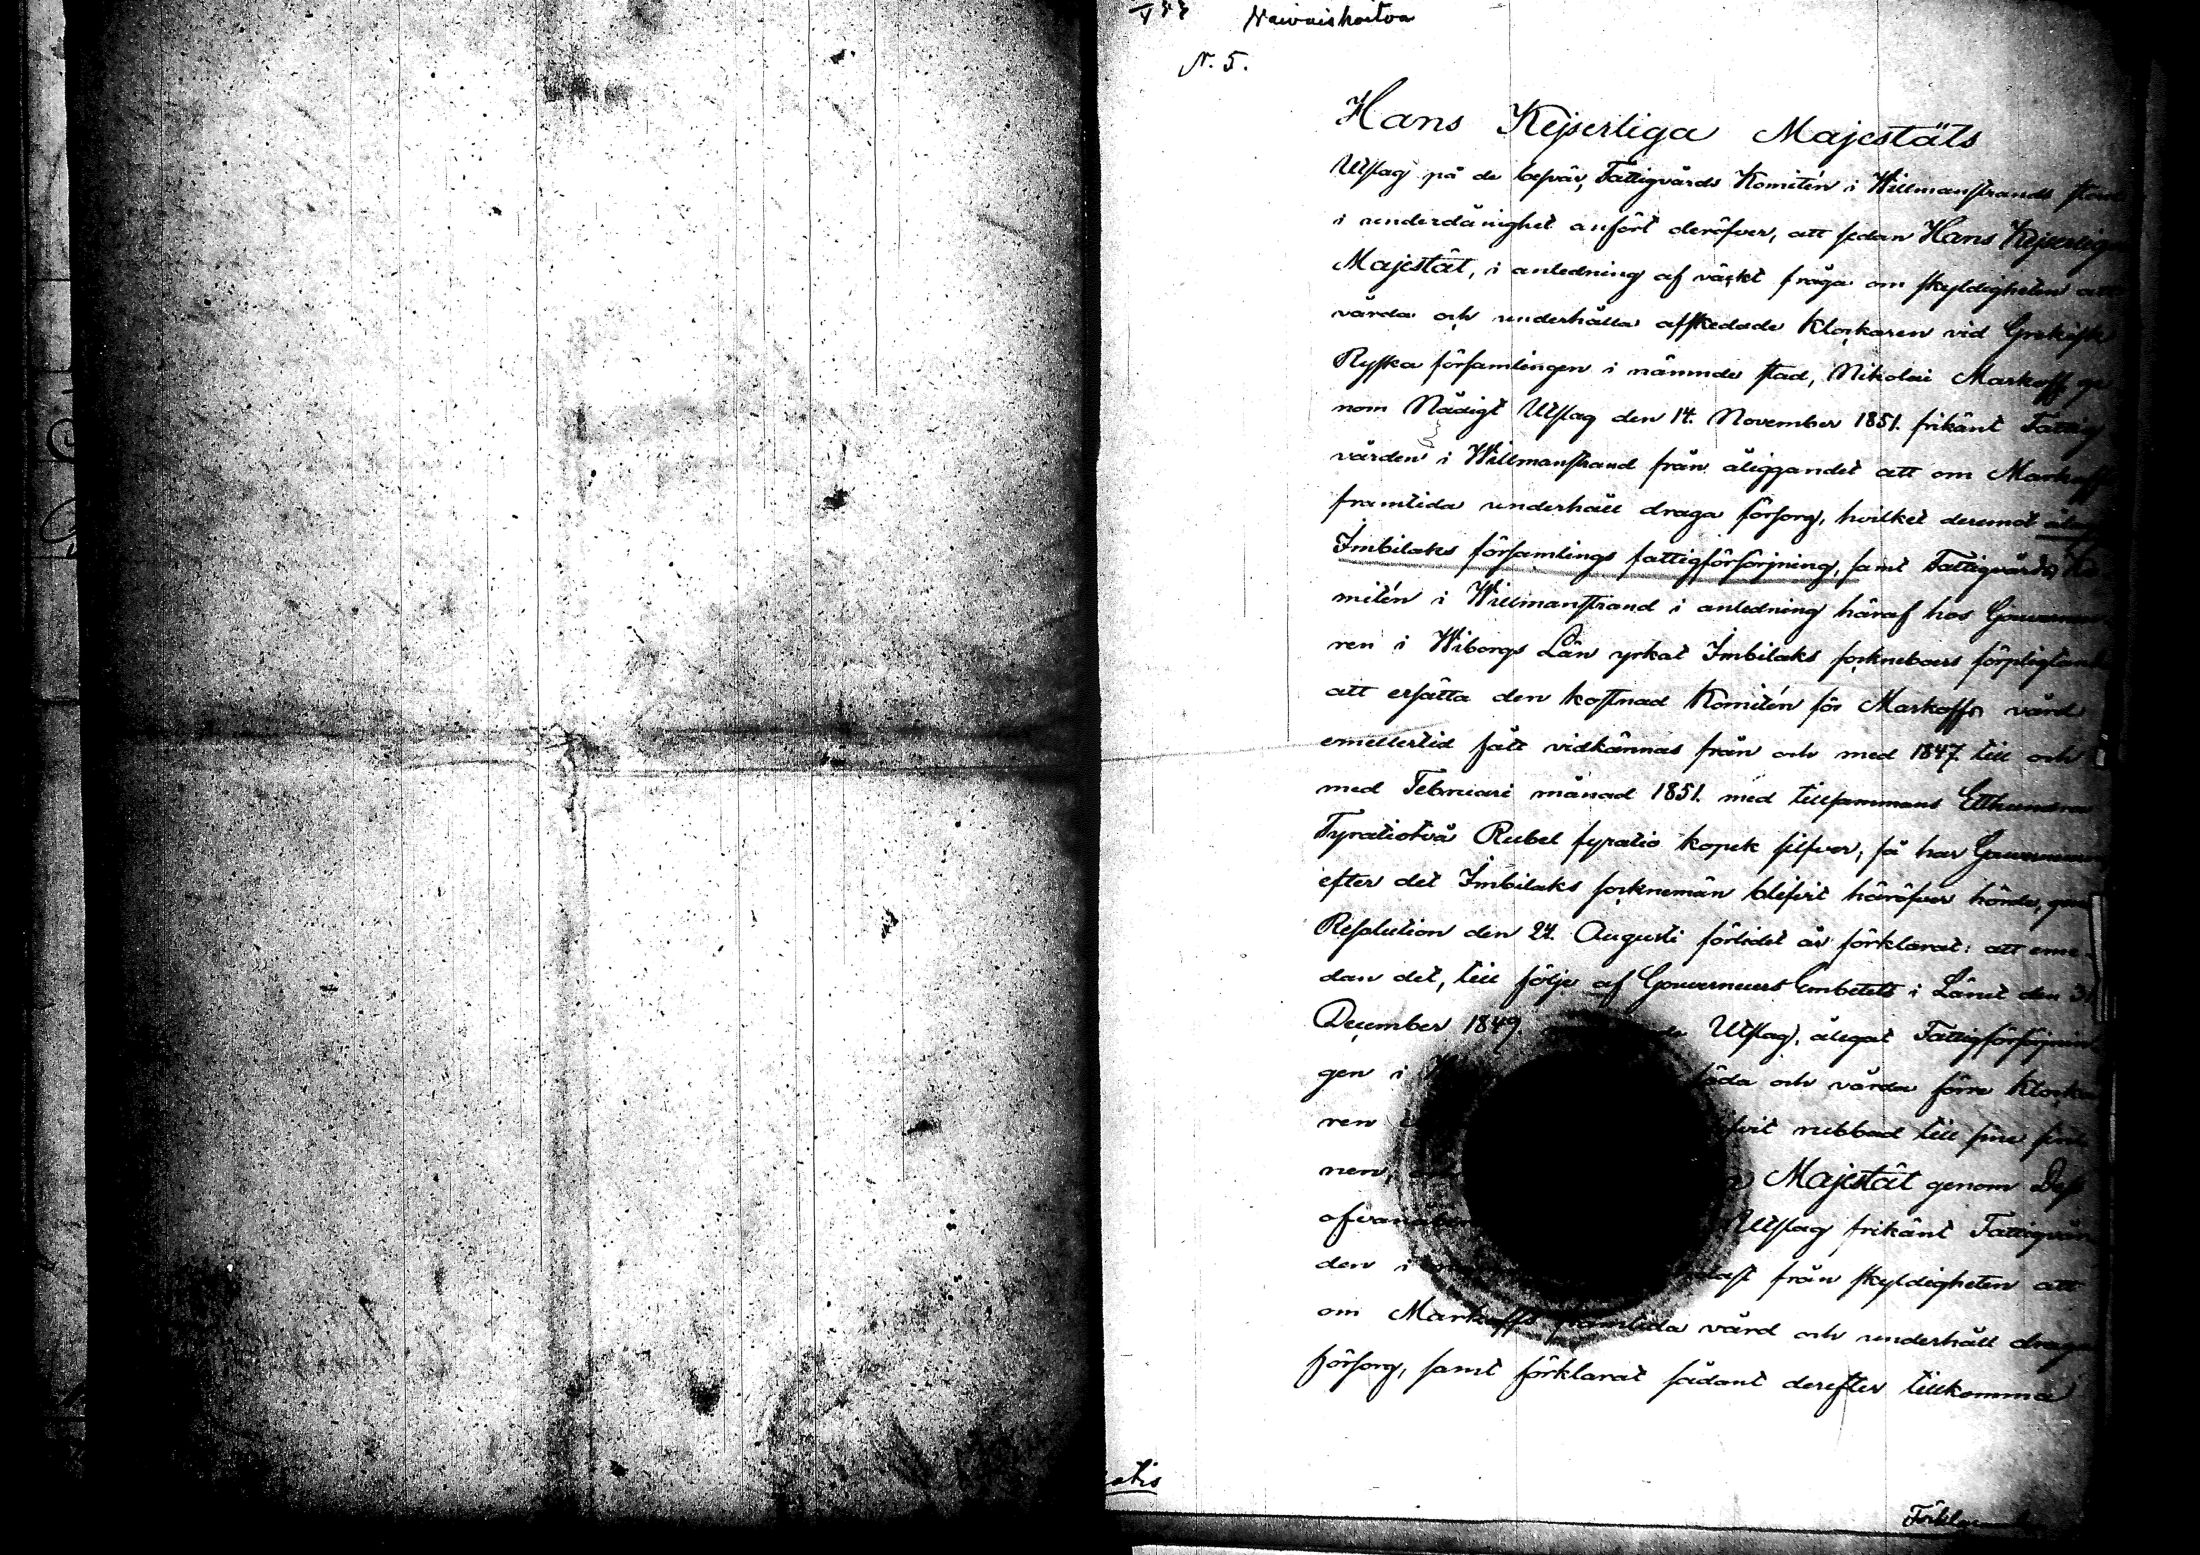 Vaivaishoitoa
N. 5.
Hans Kejserliga Majestäts
Utslag på de besvär, Fattigvårds Komitén i Willmanstrands stad
i underdånighet anfört deröfver, att sedan Hans Kejserliga
Majestät, i anledning af väckt fråga om skyldigheten att
vårda och underhålla afskedade Klockaren vid Grekisk
Ryska församlingen i nämnde stad, Nikolai Markoff ge
nom Nådigt Utslag den 14. November 1851. frikänt Fattig
vården i Willmanstrand från åliggandet att om Markoffs
framtida underhåll draga försorg, hvilket deremot
Imbilaks församlings fattigförsörjning, samt Fattigvårds Ko
mitén i Willmanstrand i anledning häraf hos Gouverneu
ren i Wiborgs Län yrkat Imbilaks sockneboers förpligtande
att ersätta den kostnad Komitén för Markoffs vård
emellertid fått vidkännas från och med 1847 till och
med Februari månad 1851. med tillsammans Etthundra
Fyratiotvå Rubel fyratio kopek silfver; så har Gouverneuren
efter det Imbilaks socknemän blifvit häröfver hörde, genom
Resolution den 24. Augusti förlidet år förklarat: att eme-
dan det, till följe af Gouverneurs Embetets i Länet den 31
December 1849 Utslag, ålegat Fattigförsörjnin
gen i föda och vårda förre Klocka
ren rubbad till sine sin
nen, Majestät genom Dess
ofvan Utslag frikänt Fattigvår
den i från skyldigheten att
om Markoffs framtida vård och underhåll draga
försorg, samt förklarat sådant derefter tillkomma